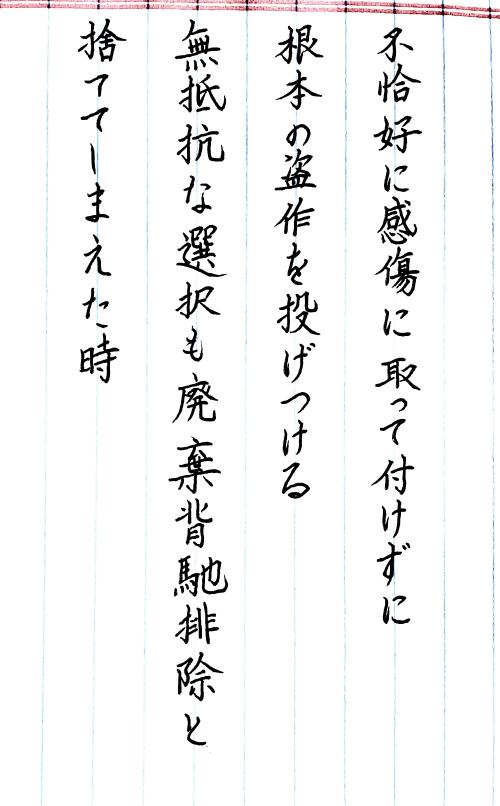 不恰好に感傷に取って付けずに
根本の盗作を投げつける
無抵抗な選択も廃棄背馳排除と
捨ててしまえた時